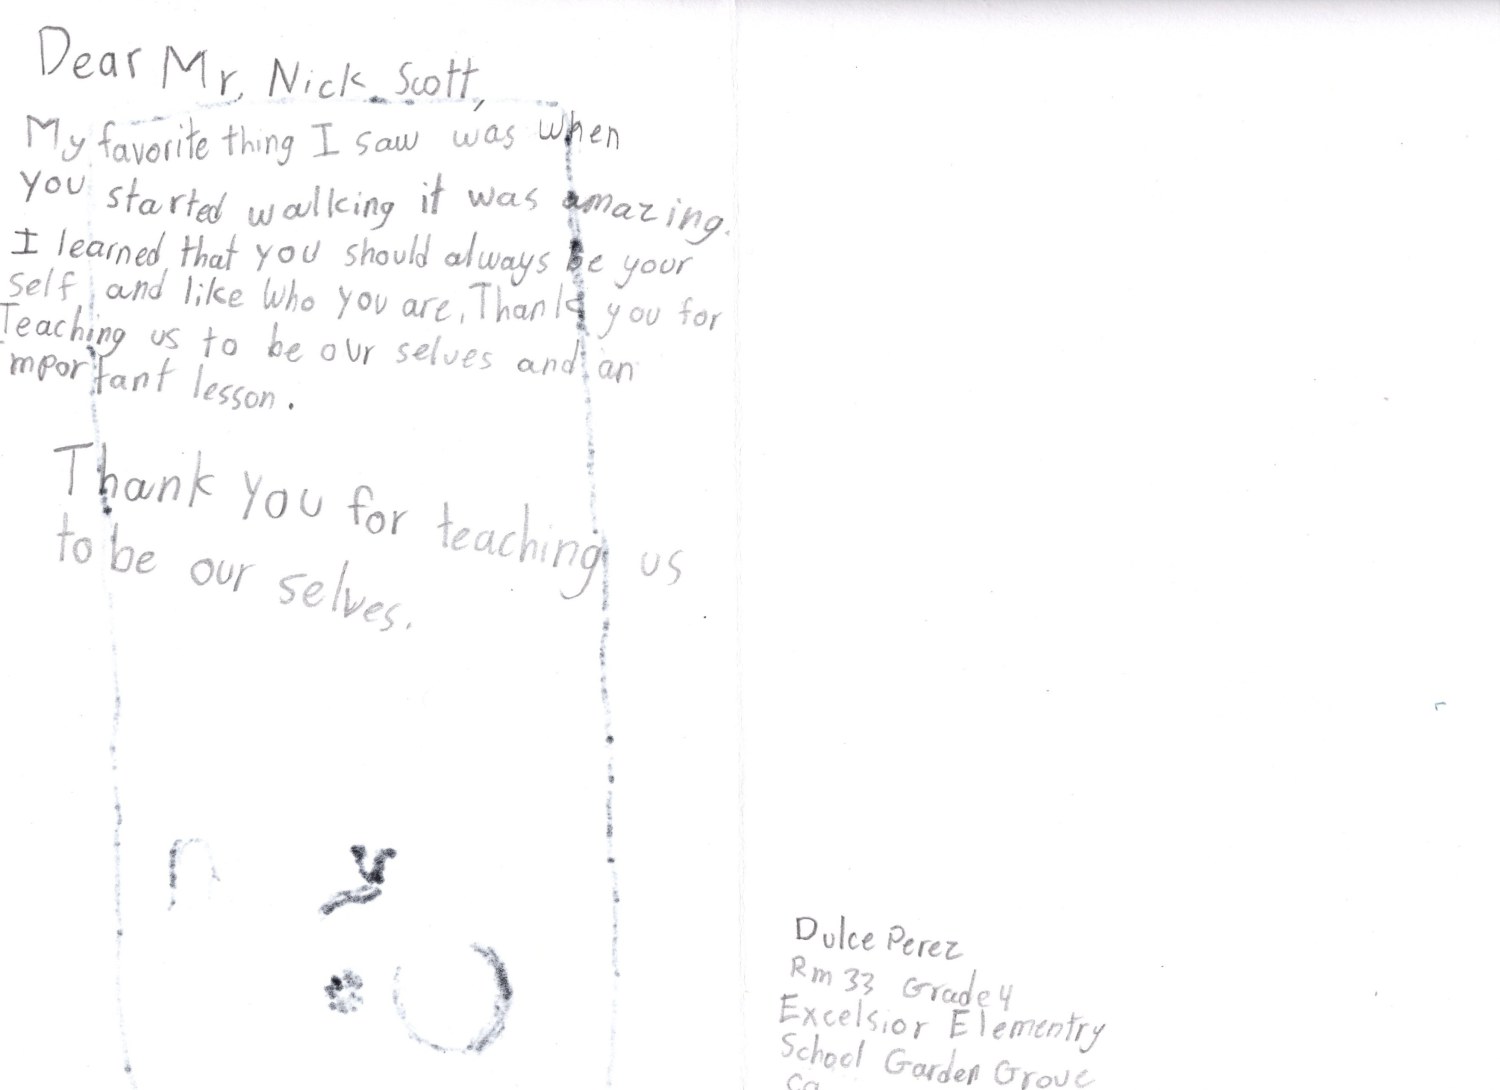 Dear Mr. Nick Scott,
My favorite thing I saw was when
you started walking it was amazing.
I learned that you should always be your
self, and like who you are. Thank you for
Teaching us to be our selves and an
mportant lesson.
Thank you for teaching us
to be our selves.
Dulce Perez
Rm 33 Grade 4
Excelsior Elementry
School Garden Grove
Ca